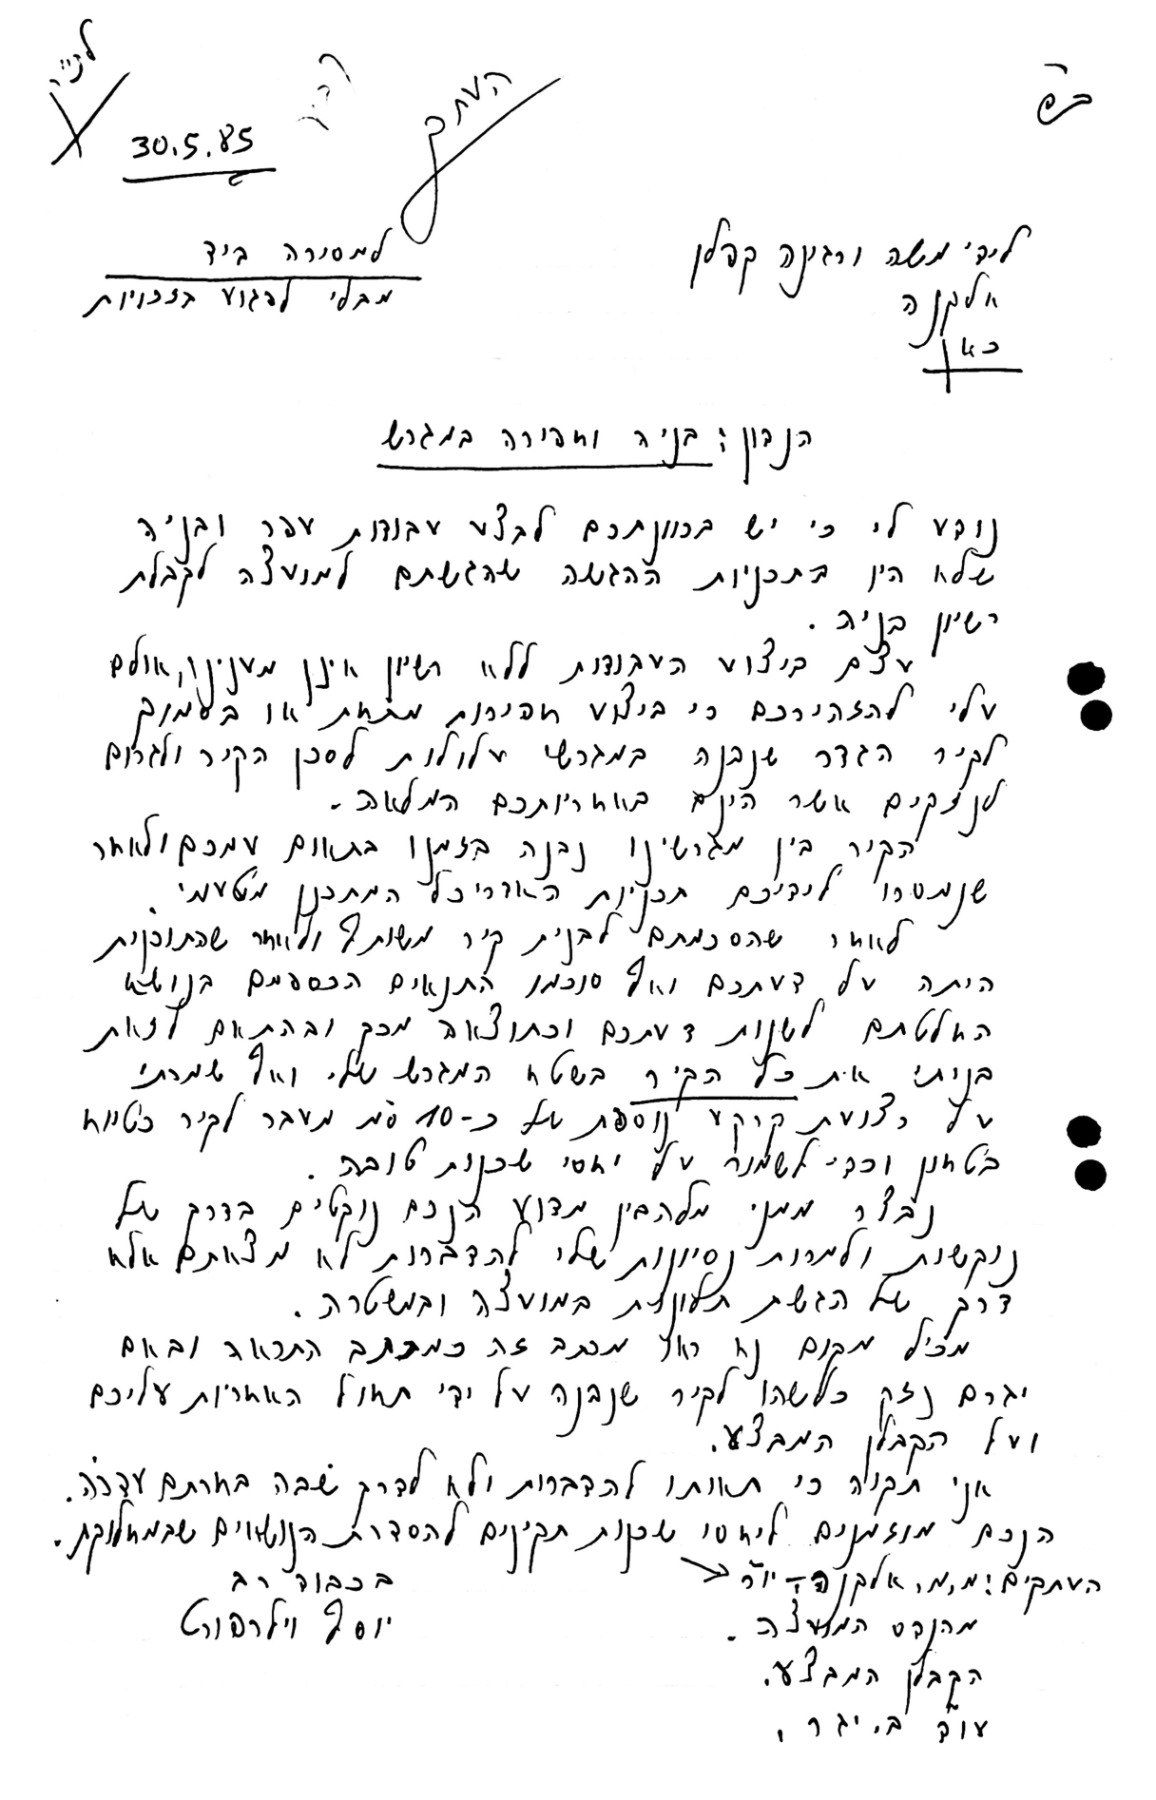 בס"ד
לכ' יו"ר
30.5.85
העתק
לידי משה ורגינה קפלן
למסירה ביד
אלקנה
מבלי לפגוע בזכויות
כאן
הנדון: בניה וחפירה במגרש
נודע לי כי יש בכוונתכם לבצע עבודות עפר ובניה
שלא היו בתכניות ההגשה שהגשתם למועצה לקבלת
רשיון בניה.
עצם ביצוע העבודות ללא רשיון איננו מענינו, אולם
עלי להזהירכם כי ביצוע חפירות מתחת או בסמוך
לקיר הגדר שנבנה במגרשי עלולות לסכן הקיר ולגרום
לנזקים אשר הינם באחריותכם המלאה.
הקיר בין מגרשינו נבנה בזמנו בתאום עמכם ולאחר
שנמסרו לידיכם תכניות האדריכל המתכנן מטעמי.
לאחר שהסכמתם לבנית קיר משותף ולאחר שהתוכנית
היתה על דעתכם ואף סוכמו התנאים הכספים בנושא
החלטתם לשנות דעתכם וכתוצאה מכך ובהתאם לזאת
בניתי את כל הקיר בשטח המגרש שלי ואף שמרתי
על רצועת קרקע נוספת של כ-10 ס"מ מעבר לקיר כטיוח
בטחון וכדי לשמור על יחסי שכנות טובה.
נבצר ממני מלהבין מדוע הנכם נוקטים בדרך של
נוקשות ולמרות נסיונות שלי להדברות לא מצאתם אלא
דרך של הגשת תלונות במועצה ובמשטרה.
מכל מקום נא ראו מכתב זה כמכתב התראה ובאם
יגרם נזק כלשהו לקיר שנבנה על ידי תחול האחריות עליכם
ועל הקבלן המבצע.
אני תקוה כי תאותו להדברות ולא לדרך שבה בחרתם עד כה.
הנכם מוזמנים ליחסי שכנות תקינים להסדרת הנושאים שבמחלוקת.
העתקים: מ.מ. אלקנה - יו"ר
בכבוד רב
מהנדס המועצה.
יוסף וילרפורט
הקבלן המבצע.
עו"ד ב. יגר.